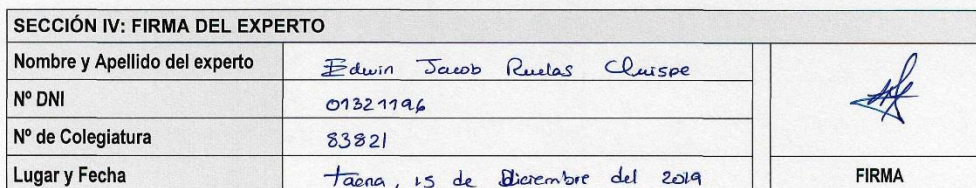 SECCIÓN IV: FIRMA DEL EXPERTO
Nombre y Apellido del experto Edwin Jacob Ruelas Quispe
Nº DNI 01321196
Nº de Colegiatura 83821
Lugar y Fecha Tacna, 15 de Diciembre del 2019
FIRMA